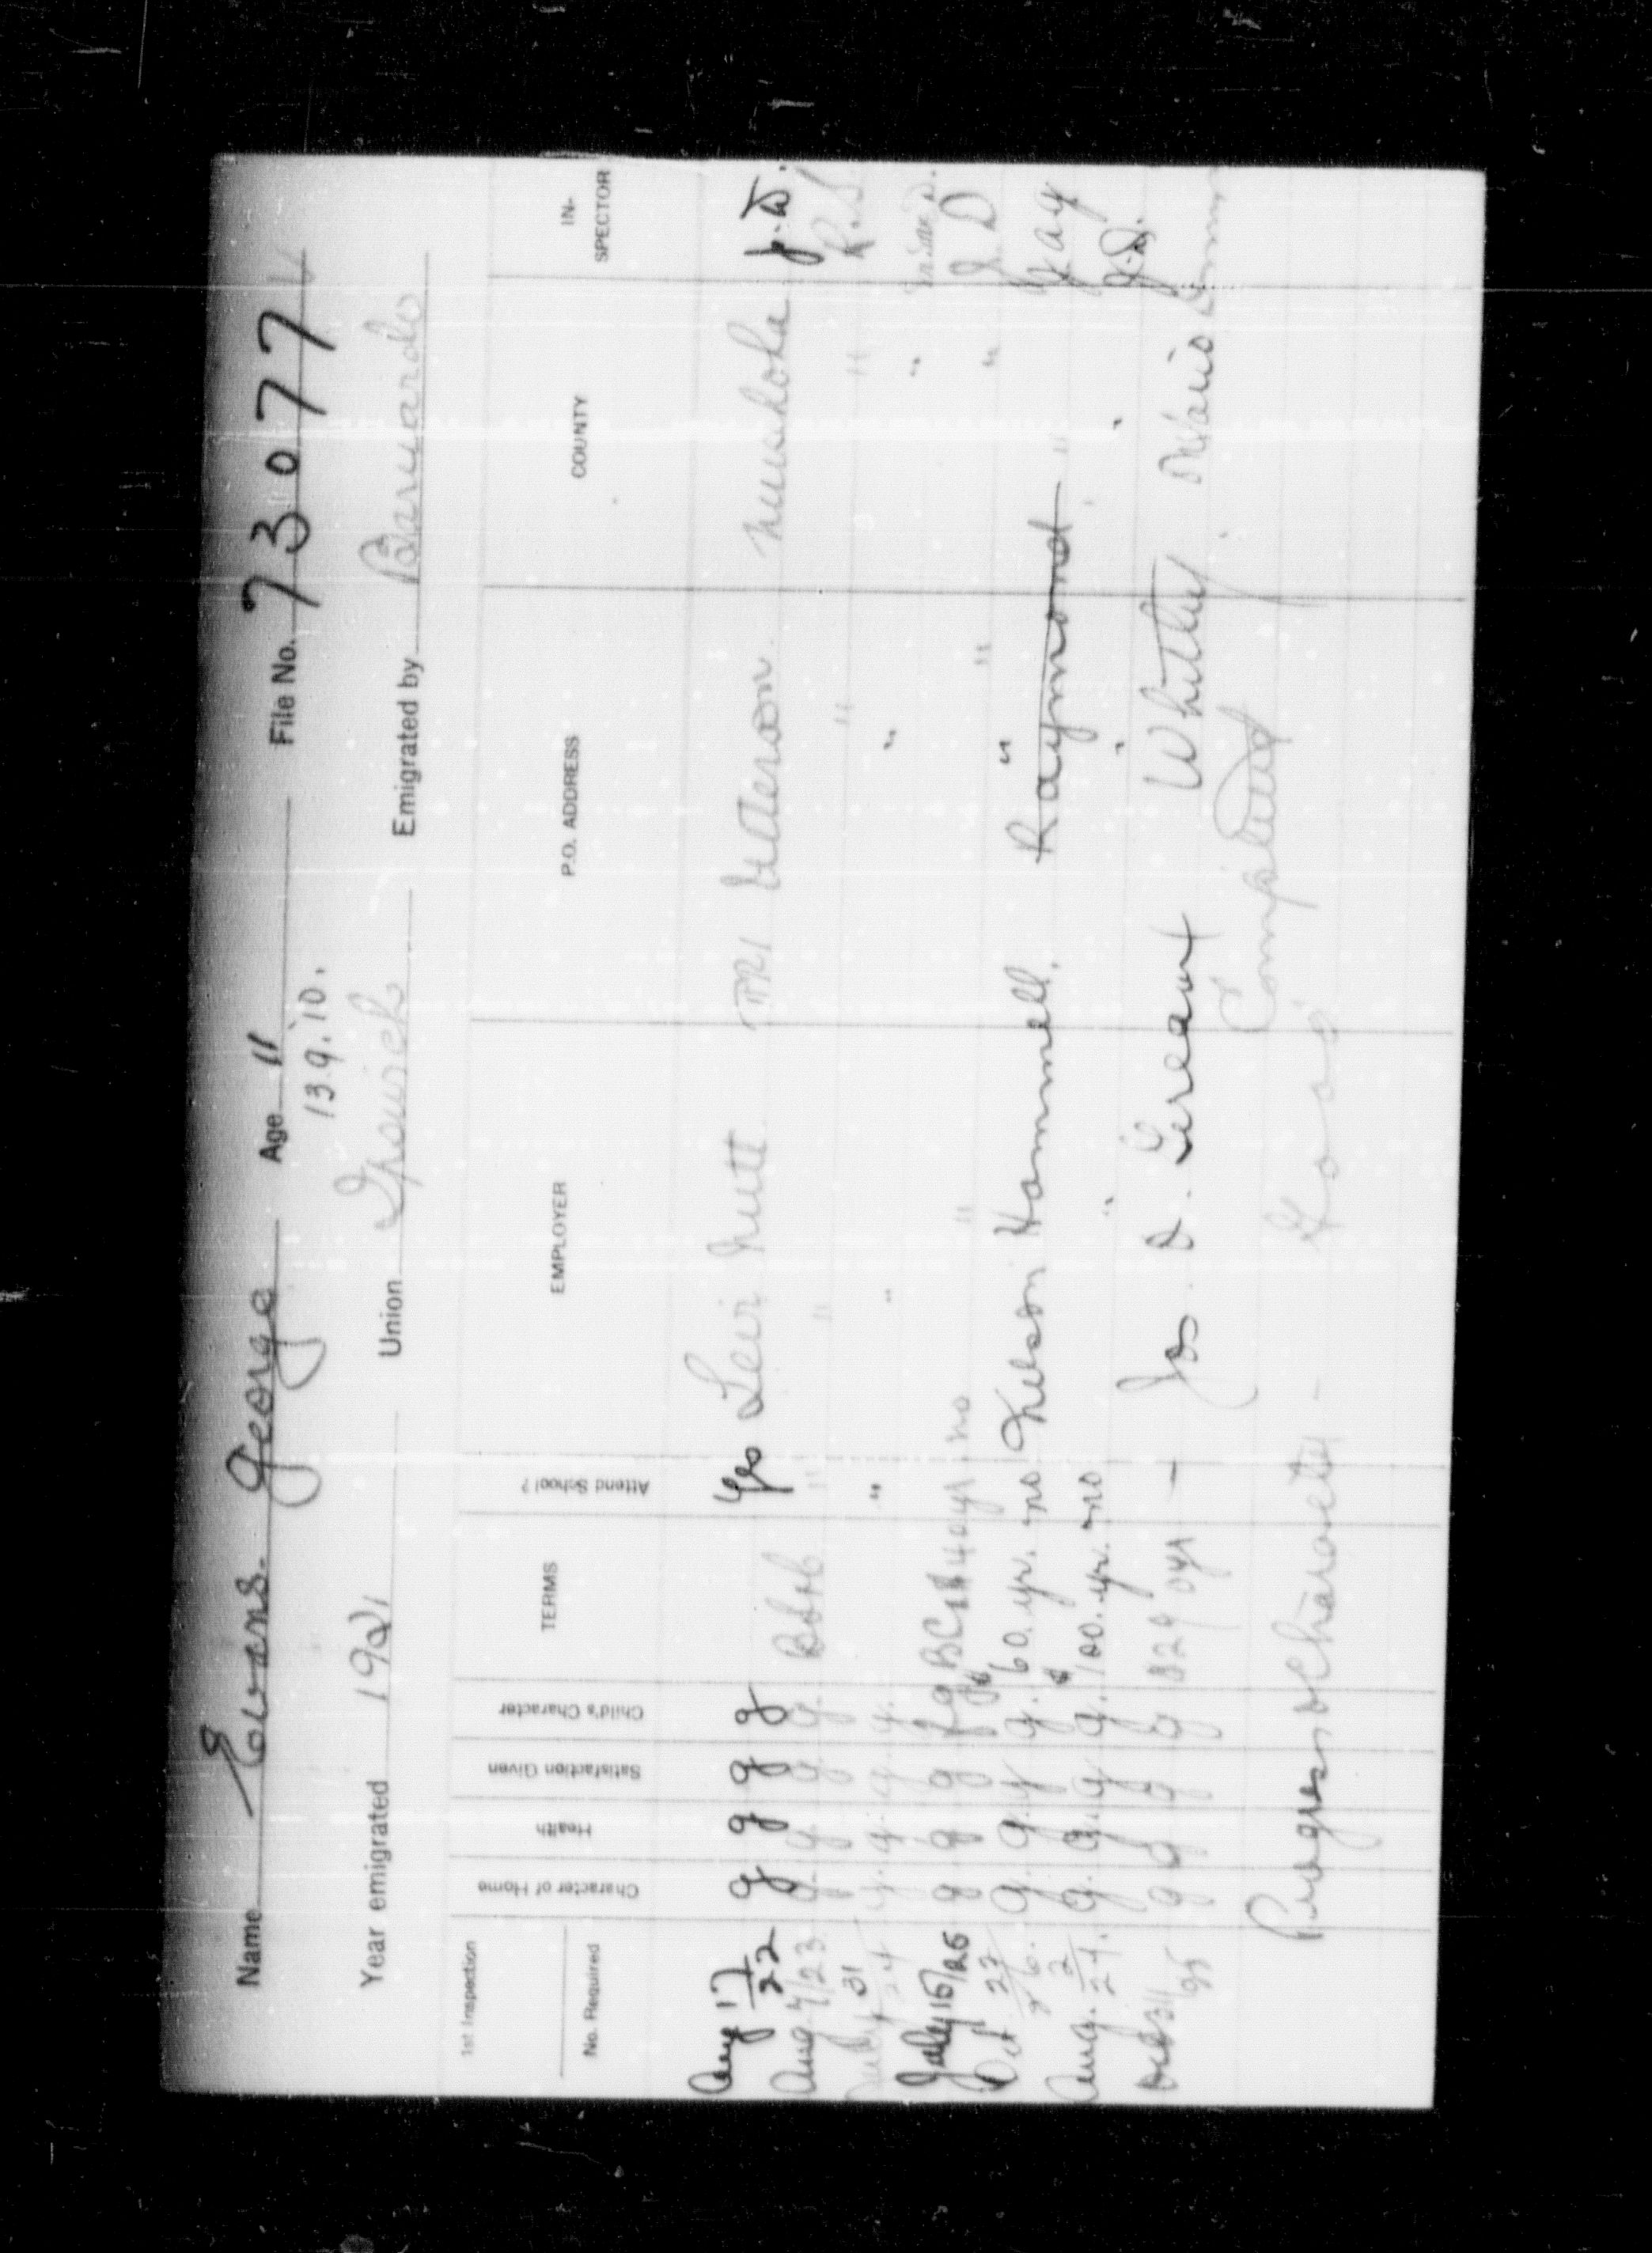 Name Evans. George Age 11 File No. 73077
13.9.'10.
Year emigrated 1921 Union Ipswich Emigrated by Barnardo
1st Inspection
No. Required
Character of Home Health Satisfaction Given Child's Character TERMS Attend School? EMPLOYER P.O. ADDRESS COUNTY IN-SPECTOR
Aug 17/22 g g g g Yes Levi Nutt RR1 Muskoka J.D.
Aug 7/23 g g g g " " " " R.S.
July 31/24 g. g. g. g. " " " "
July 15/25 g g g fg no " " " J D
Oct 27/26. g. g. g. g. $60. yr. no Nelson Hammell. " Raymond " Jay
Aug. 2/27. g. g. g. g. $100. yr. no " " " J.D.
g g g g yr — Jos. D. Greaux Whitby Ontario
Completed
Progress & Character - Good